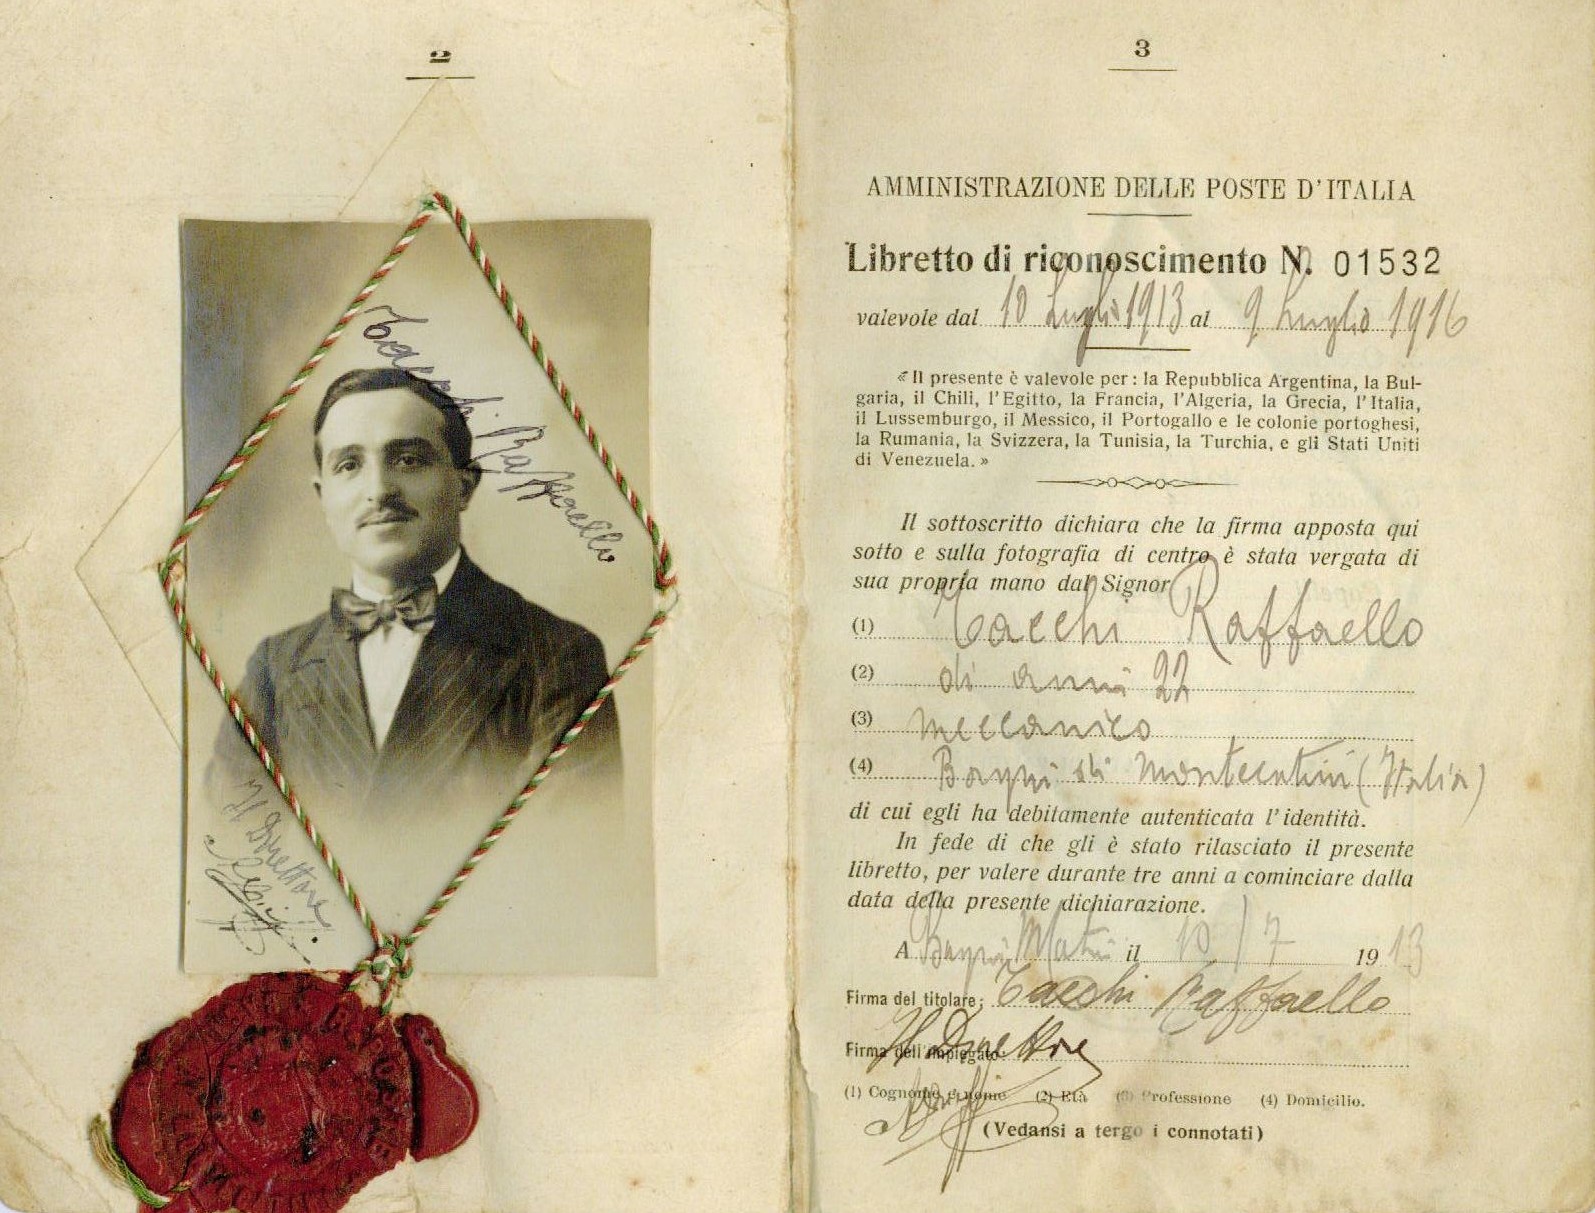 2
Tacchi Raffaello
Il Direttore
3
AMMINISTRAZIONE DELLE POSTE D'ITALIA
Libretto di riconoscimento N. 01532
valevole dal 10 Luglio 1913 al 9 Luglio 1916
« Il presente è valevole per: la Repubblica Argentina, la Bul-
garia, il Chilì, l'Egitto, la Francia, l'Algeria, la Grecia, l'Italia,
il Lussemburgo, il Messico, il Portogallo e le colonie portoghesi,
la Rumania, la Svizzera, la Tunisia, la Turchia, e gli Stati Uniti
di Venezuela. »
Il sottoscritto dichiara che la firma apposta qui
sotto e sulla fotografia di centro è stata vergata di
sua propria mano dal Signor
(1) Tacchi Raffaello
(2) di anni 22
(3) meccanico
(4) Bagni di Montecatini (Italia)
di cui egli ha debitamente autenticata l'identità.
In fede di che gli è stato rilasciato il presente
libretto, per valere durante tre anni a cominciare dalla
data della presente dichiarazione.
A Bagni il 10/7 1913
Firma del titolare: Tacchi Raffaello
Firma dell'impiegato: Il Direttore
(1) Cognome e nome (2) Età (3) Professione (4) Domicilio.
(Vedansi a tergo i connotati)